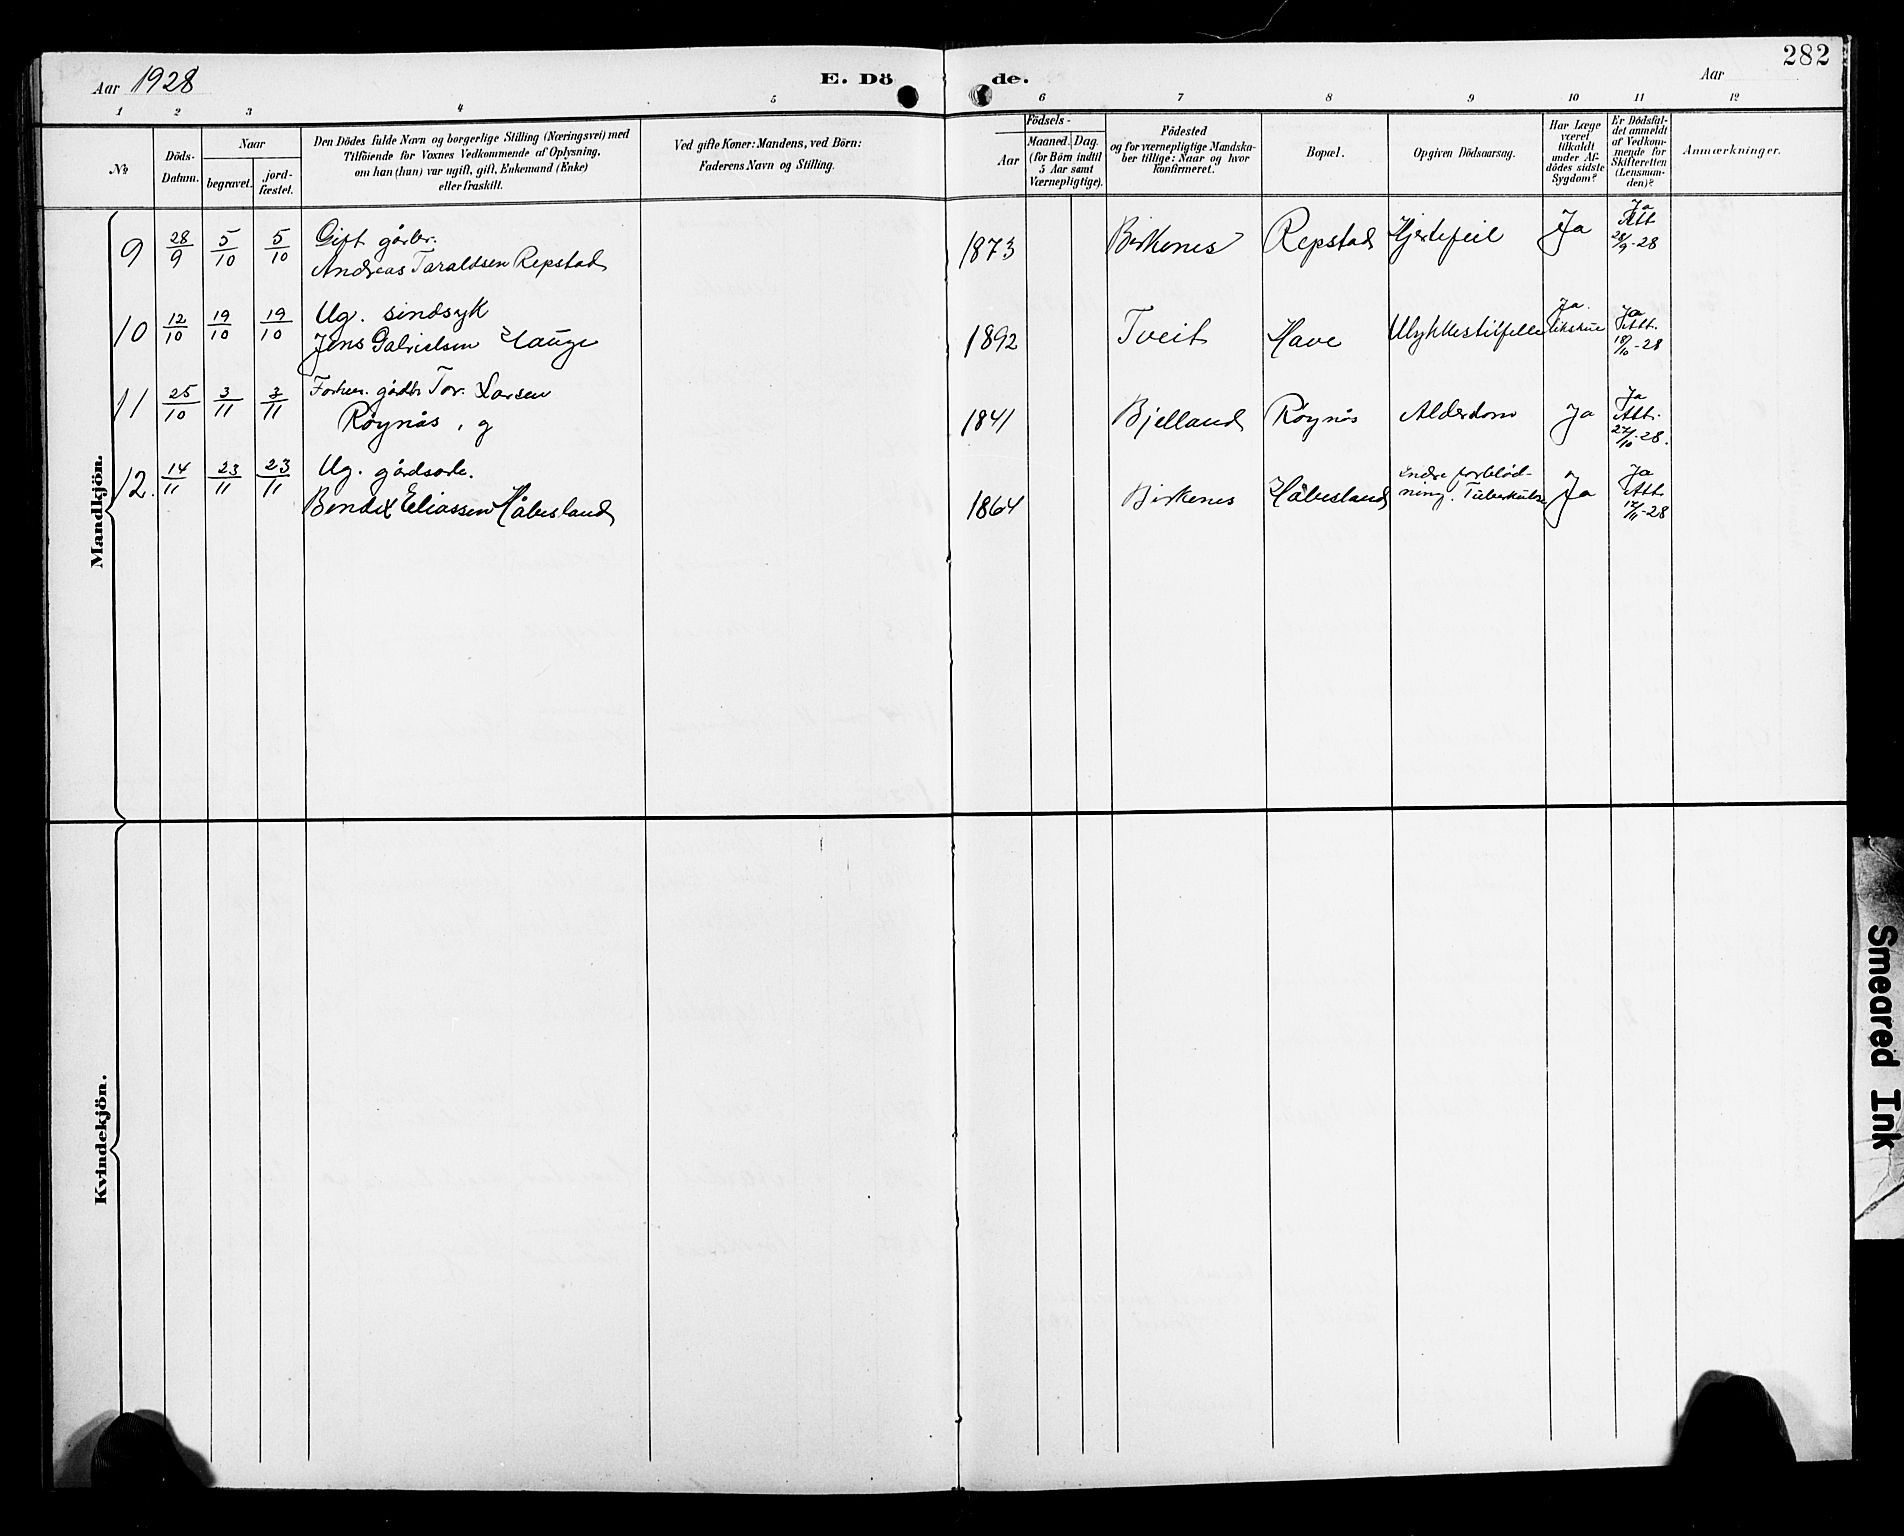 282
Aar 1928
E. Döde.
Aar
1 2 3 4 5 6 7 8 9 10 11 12
No
Döds-
Datum.
Naar
begravet.
jord-
fæstet.
Den Dödes fulde Navn og borgerlige Stilling (Næringsvei) med
Tilföiende for Voxnes Vedkommende af Oplysning,
om han (hun) var ugift, gift, Enkemand (Enke)
eller fraskilt.
Ved gifte Koner: Mandens, ved Börn:
Faderens Navn og Stilling.
Födsels-
Aar
Maaned. Dag.
(for Börn indtil
5 Aar samt
Værnepligtige).
Födested
og for værnepligtige Mandska-
ber tillige: Naar og hvor
konfirmeret.
Bopæl.
Opgiven Dödsaarsag.
Har Læge
været
tilkaldt
under Af-
dödes sidste
Sygdom?
Er Dödsfal-
det anmeldt
af Vedkom-
mende for
Skifteretten
(Lensman-
den)?
Anmærkninger.
Mandkjön.
9 28/9 5/10 5/10 Gift gårbr.
Andreas Taraldsen Repstad
1873 Birkenes Repstad Hjertefeil Ja Ja
Att
28/9-28
10 12/10 19/10 19/10 Ug. sindsyk
Jens Gabrielsen Hauge
1892 Tveit Have Ulykkestilfelle Ja.
likskue
Ja
Att.
18/10-28
11 25/10 3/11 3/11 Forhen. gårdbr. Tor. Larsen
Røynås, g
1841 Bjelland Røynås Alderdom Ja Ja
Att.
27/10-28.
12. 14/11 23/11 23/11 Ug. gårdsarb.
Bendix Eliassen Håbesland
1864 Birkenes Håbesland Indre forblød-
ning. Tuberkulose Ja Ja
Att
17/11-28
Kvindekjön.
Smeared Ink